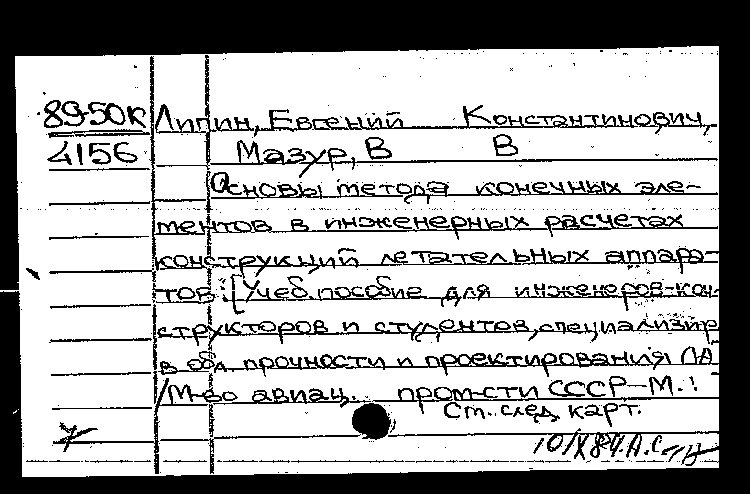 89-50К Липин, Евгений Константинович,
4156 Мазур, В В
Основы метода конечных эле-
ментов в инженерных расчетах
конструкций летательных аппара-
тов: [Учеб. пособие для инженеров-кон-
структоров и студентов, специализир
в обл прочности и проектирования ЛА
/М-во авиац. пром-сти СССР - М.:
См. след. карт.